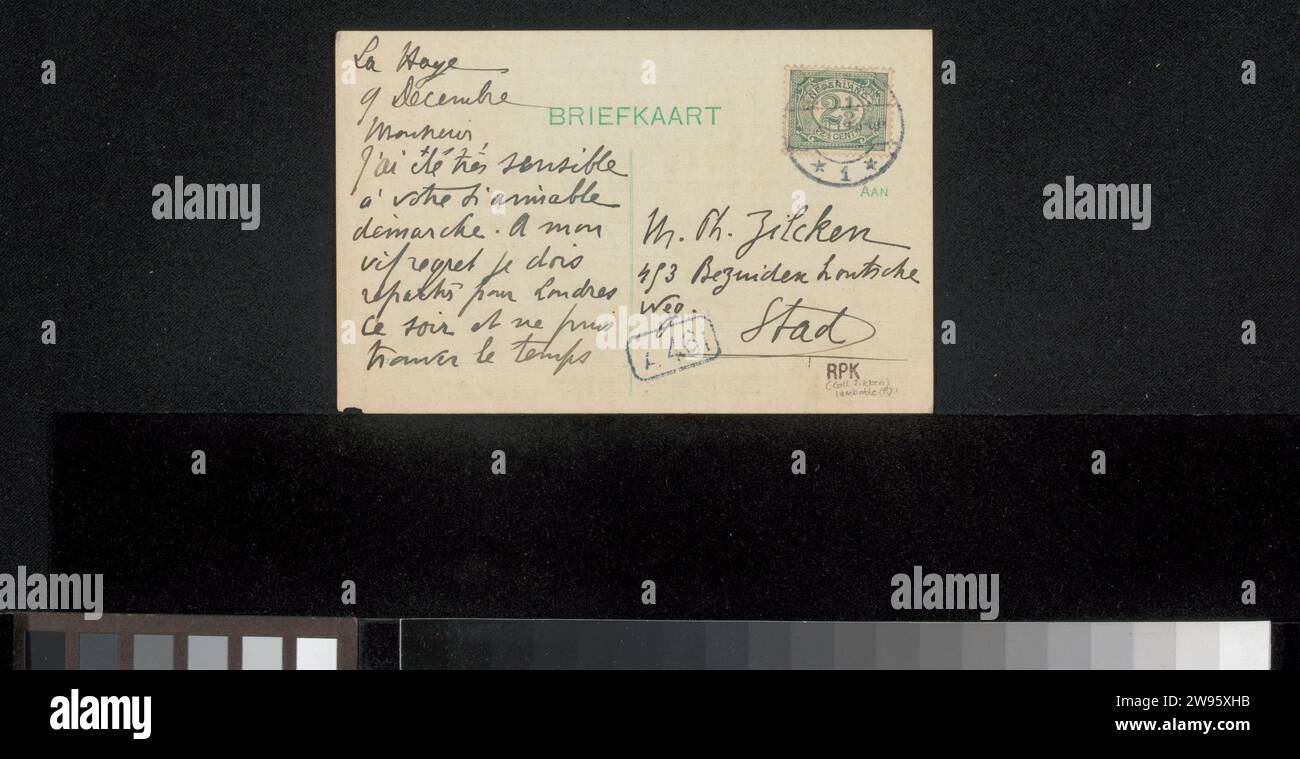 La Haye
9 Decembre
Monsieur
J'ai été très sensible
à votre si aimable
démarche. A mon
vif regret je dois
repartir pour Londres
ce soir et ne puis
trouver le temps
BRIEFKAART
NEDERLAND
2½
(2½ CENT)
1
AAN
M. Ph. Zilcken
493 Bezuidenhoutsche
Weg.
Stad
RPK
(Coll. Zilcken)
a alamy
alamy
Image ID: 2W95XHB
www.alamy.com